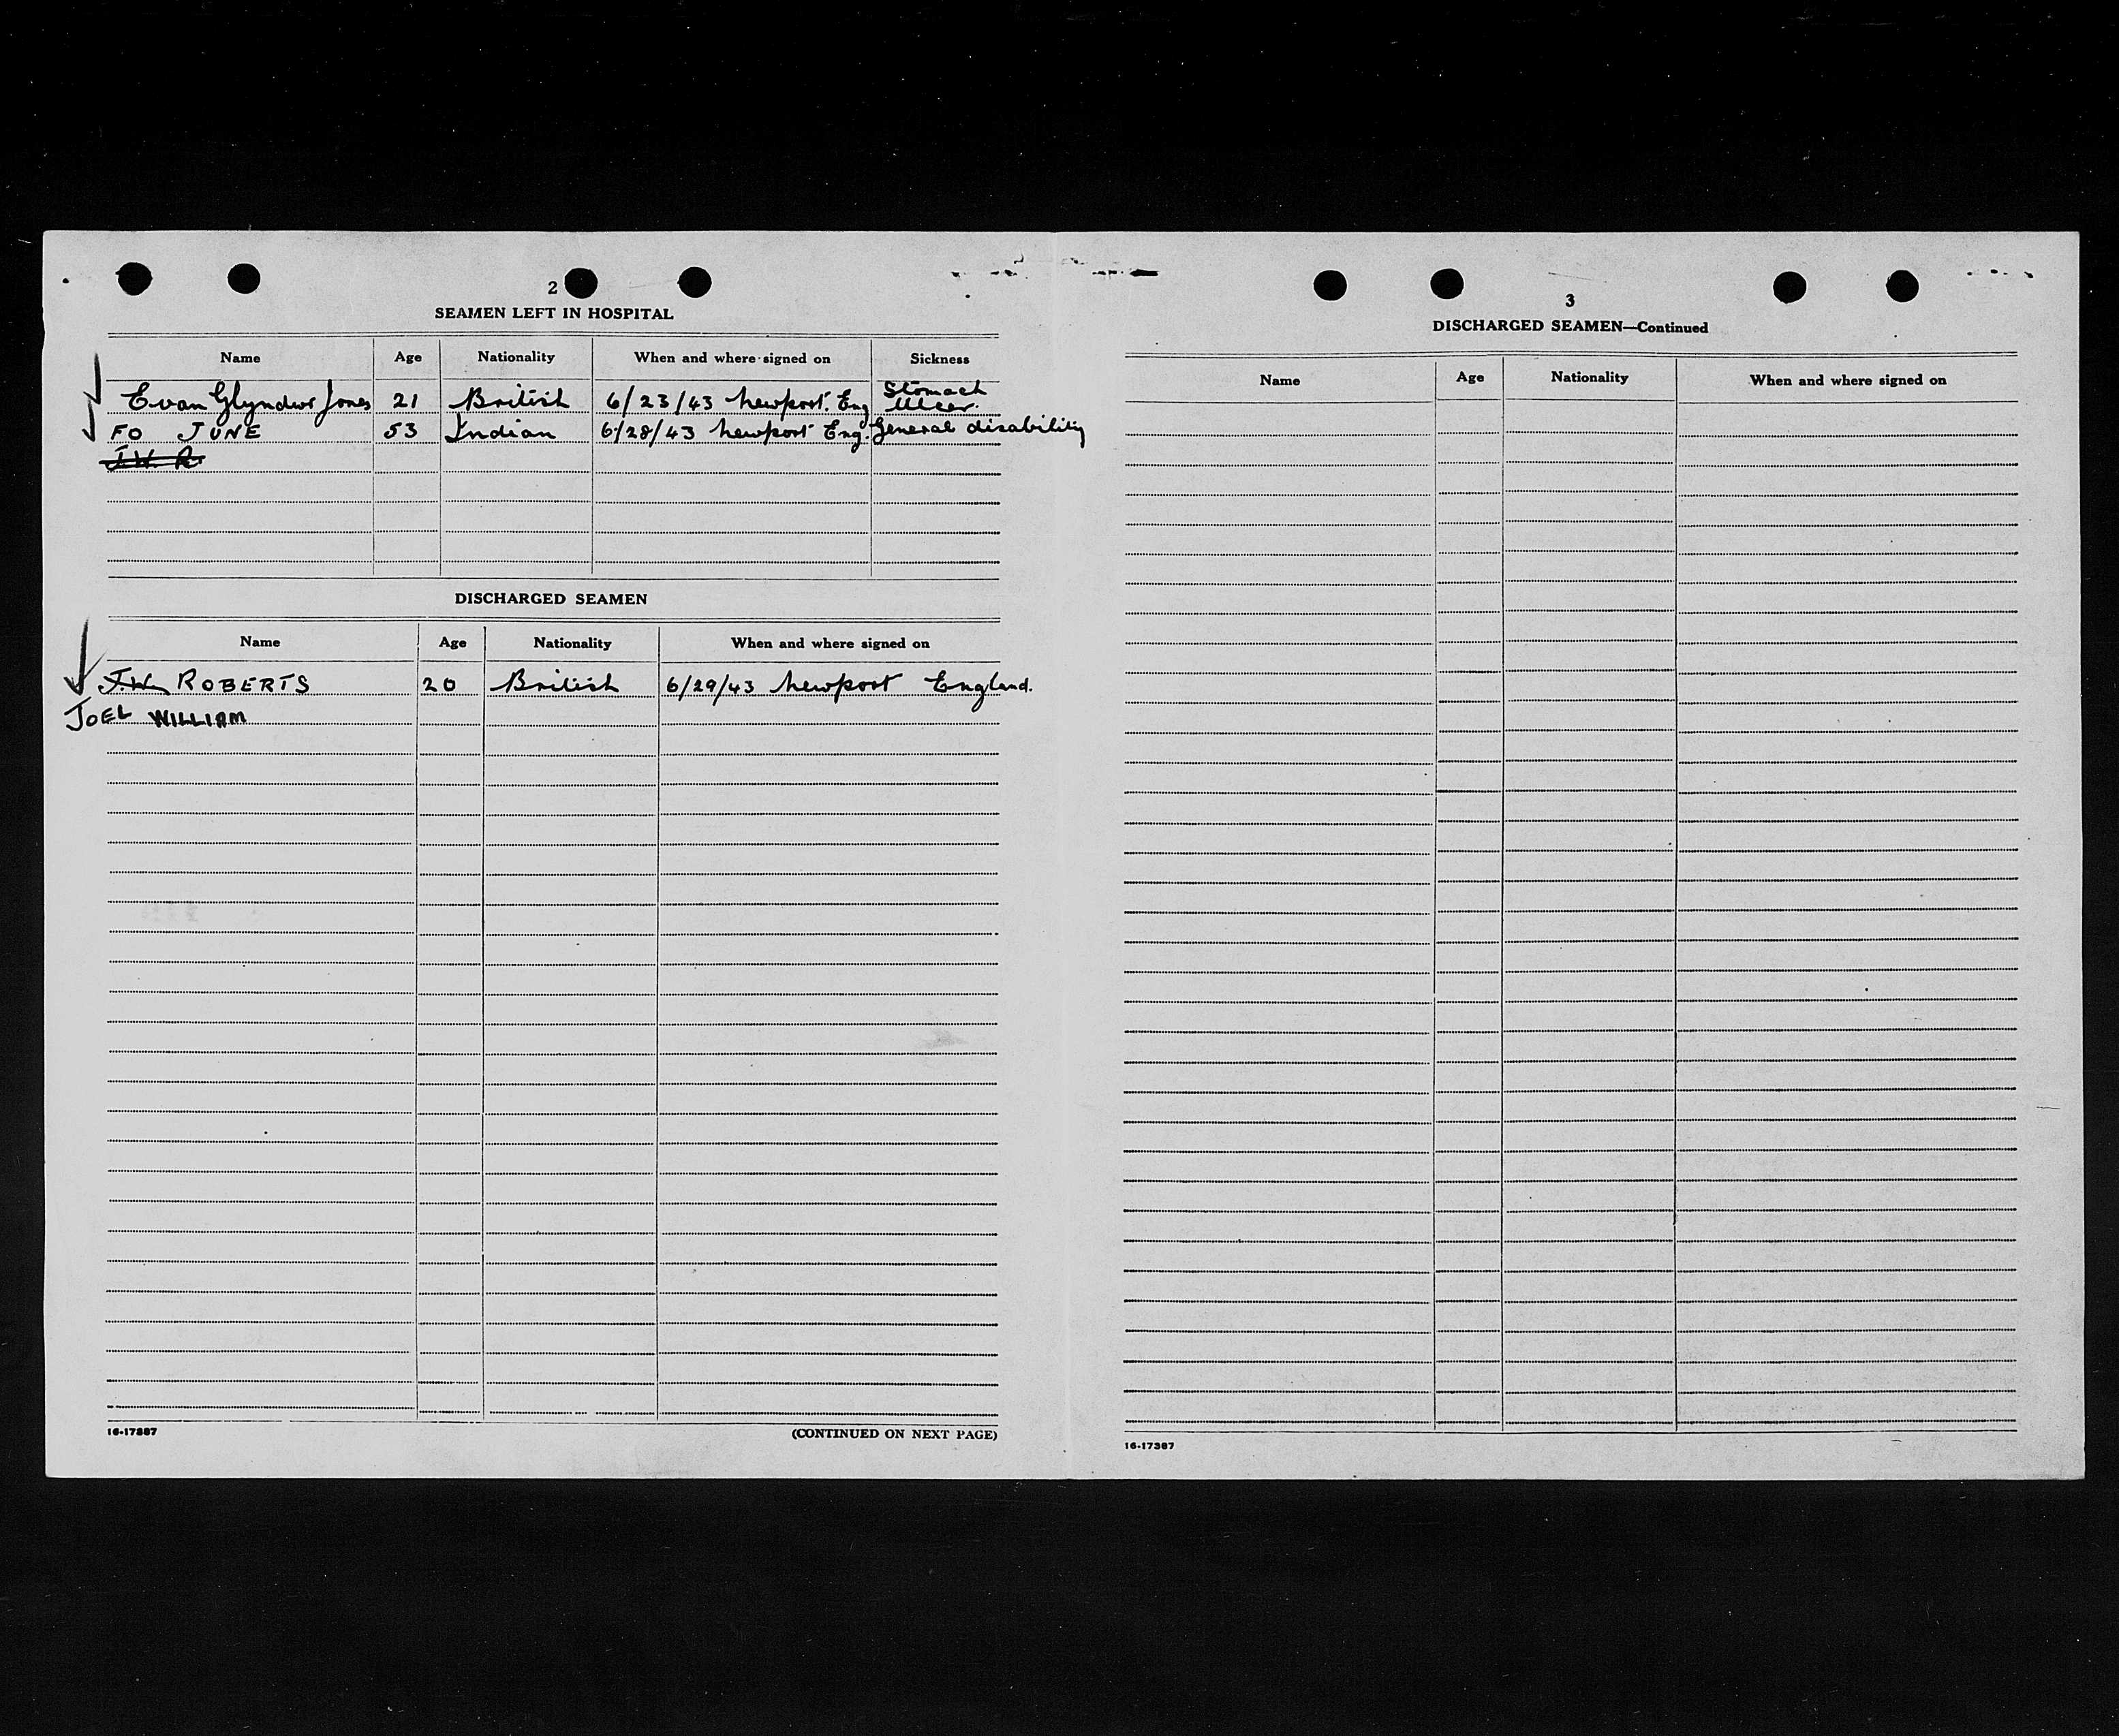 2
SEAMEN LEFT IN HOSPITAL
Name Age Nationality When and where signed on Sickness
Evan Glyndwr Jones 21 British 6/23/43 Newport. Eng Stomach Ulcer.
FO JUNE 53 Indian 6/28/43 Newport Eng. General disability
J.W. R
DISCHARGED SEAMEN
Name Age Nationality When and where signed on
J.W. ROBERTS 20 British 6/29/43 Newport England.
JOEL WILLIAM
16-17387
(CONTINUED ON NEXT PAGE)
3
DISCHARGED SEAMEN—Continued
Name Age Nationality When and where signed on
16-17387